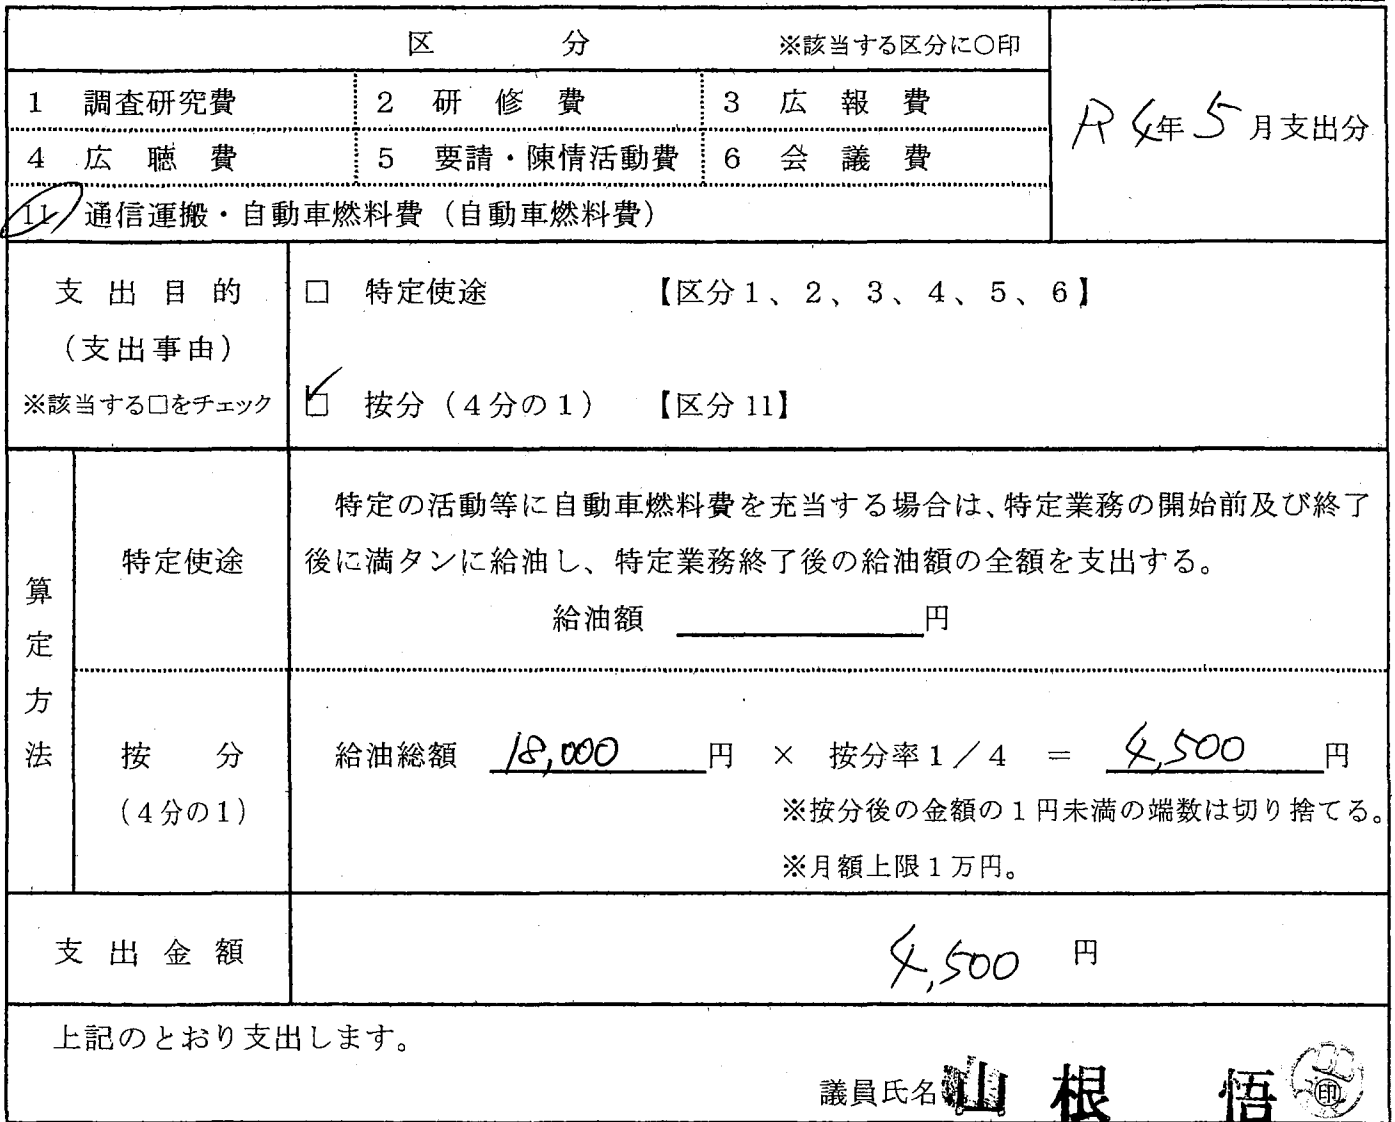 区　　　分　　　※該当する区分に○印
R4年5月支出分
1　調査研究費　2　研修費　3　広報費
4　広聴費　5　要請・陳情活動費　6　会議費
11　通信運搬・自動車燃料費（自動車燃料費）
支出目的
（支出事由）
※該当する□をチェック
□　特定使途　【区分1、2、3、4、5、6】
☑　按分（4分の1）　【区分11】
算定方法
特定使途
特定の活動等に自動車燃料費を充当する場合は、特定業務の開始前及び終了
後に満タンに給油し、特定業務終了後の給油額の全額を支出する。
給油額　　　　　円
按　分
（4分の1）
給油総額　18,000　円　×　按分率1／4　＝　4,500　円
※按分後の金額の1円未満の端数は切り捨てる。
※月額上限1万円。
支出金額
4,500　円
上記のとおり支出します。
議員氏名　山根　悟　㊞